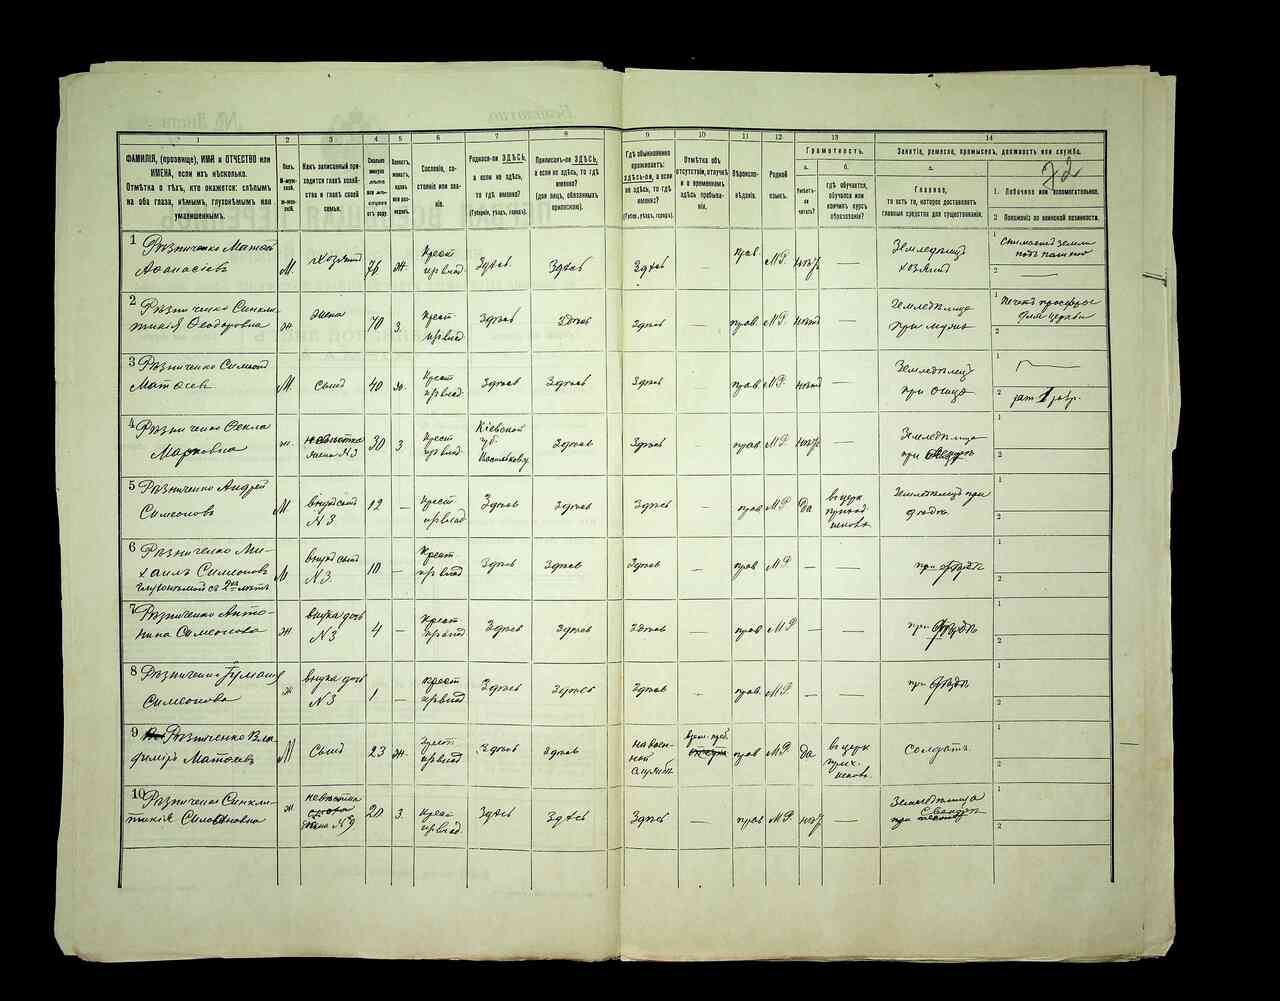 1
2
3
4
5
6
7
8
9
10
11
12
13
14
ФАМИЛІЯ, (прозвище), ИМЯ и ОТЧЕСТВО или
ИМЕНА, если ихъ нѣсколько.
Отмѣтка о тѣхъ, кто окажется: слѣпымъ
на оба глаза, нѣмымъ, глухонѣмымъ или
умалишеннымъ.
Полъ.
М-муж-
ской.
Ж-жен-
скій.
Какъ записанный при-
ходится главѣ хозяй-
ства и главѣ своей
семьи.
Сколько
минуло
лѣтъ
или мѣ-
сяцевъ
отъ роду.
Холостъ,
женатъ,
вдовъ
или раз-
веденъ.
Сословіе, со-
стояніе или зва-
ніе.
Родился-ли ЗДѢСЬ,
а если не здѣсь,
то гдѣ именно?
(Губернія, уѣздъ, городъ).
Приписанъ-ли ЗДѢСЬ,
а если не здѣсь, то гдѣ
именно?
(для лицъ, обязанныхъ
припискою).
Гдѣ обыкновенно
проживаетъ:
здѣсь-ли, а если
не здѣсь, то гдѣ
именно?
(Губерн., уѣздъ, городъ).
Отмѣтка объ
отсутствіи, отлучкѣ
и о временномъ
здѣсь пребыва-
ніи.
Вѣроиспо-
вѣданіе.
Родной
языкъ.
Грамотность.
а.
б.
Умѣетъ-
ли
читать?
гдѣ обучается,
обучался или
кончилъ курсъ
образованія?
Занятіе, ремесло, промыселъ, должность или служба.
а.
Главное,
то есть то, которое доставляетъ
главныя средства для существованія.
72
1. Побочное или вспомогательное.
2 Положеніе по воинской повинности.
1 Рѣзниченко Матвей
Афанасіевъ
М. хозяинъ 76 ж. Крест Здѣсь. Здѣсь Здѣсь — прав. М.Р. нѣтъ — Земледѣлецъ
хозяинъ
2 —
2 Рѣзниченко Синкли-
тикія Ѳеодоровна
ж жена 70 з. Крест Здѣсь Здѣсь Здѣсь — прав. М.Р. нѣтъ — Земледѣлица
при мужѣ
1 Печетъ просфоры
для церкви
2
3 Рѣзниченко Симеонъ
Матвѣевъ
М. сынъ 40 ж. Крест Здѣсь Здѣсь Здѣсь — прав М.Р. нѣтъ — Земледѣлецъ
при отцѣ
1
2 рат 1 разр.
4 Рѣзниченко Ѳекла
Марковна
ж. невѣстка
жена N 3
30 з Крест
Кіевской
губ.
Здѣсь Здѣсь — прав М.Р. нѣтъ — Земледѣлица
при
1
2
5 Рѣзниченко Андрей
Симеоновъ
М внукъ сынъ
N 3.
12 — Крест Здѣсь Здѣсь Здѣсь — прав М.Р. Да
въ церк
приход
Земледѣлецъ при
дѣдѣ
1
2
6 Рѣзниченко Ми-
хаилъ Симеоновъ
глухонѣмой съ 2хъ лѣтъ
М внукъ сынъ
N 3.
10 — Крест Здѣсь Здѣсь Здѣсь — прав М.Р — — при дѣдѣ
1
2
7 Рѣзниченко Анто-
нина Симеонова
ж внука дочь
N 3
4 — Крест Здѣсь Здѣсь Здѣсь — прав М.Р — — при дѣдѣ
1
2
8 Рѣзниченко
Симеонова
ж внука дочь
N 3
1 — Крест Здѣсь Здѣсь Здѣсь — прав. М.Р. — — при дѣдѣ
1
2
9 Рѣзниченко Вла-
димиръ Матвѣевъ
М Сынъ 23 ж. Крест. Здѣсь Здѣсь
на воен-
ной
службѣ
прав М.Р. да
въ церк
прих.
солдатъ.
1
2
10 Рѣзниченко Синкли-
тикія
ж невѣстка
жена N 9
20 з. Крест Здѣсь Здѣсь Здѣсь — прав М.Р. нѣтъ — Земледѣлица
при
1
2